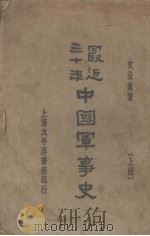 文公直著
最近三十年中國軍事史
[上冊]
上海太平洋書店印行